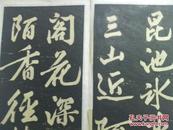 昆池冰
三山近
阁花深
陌香径